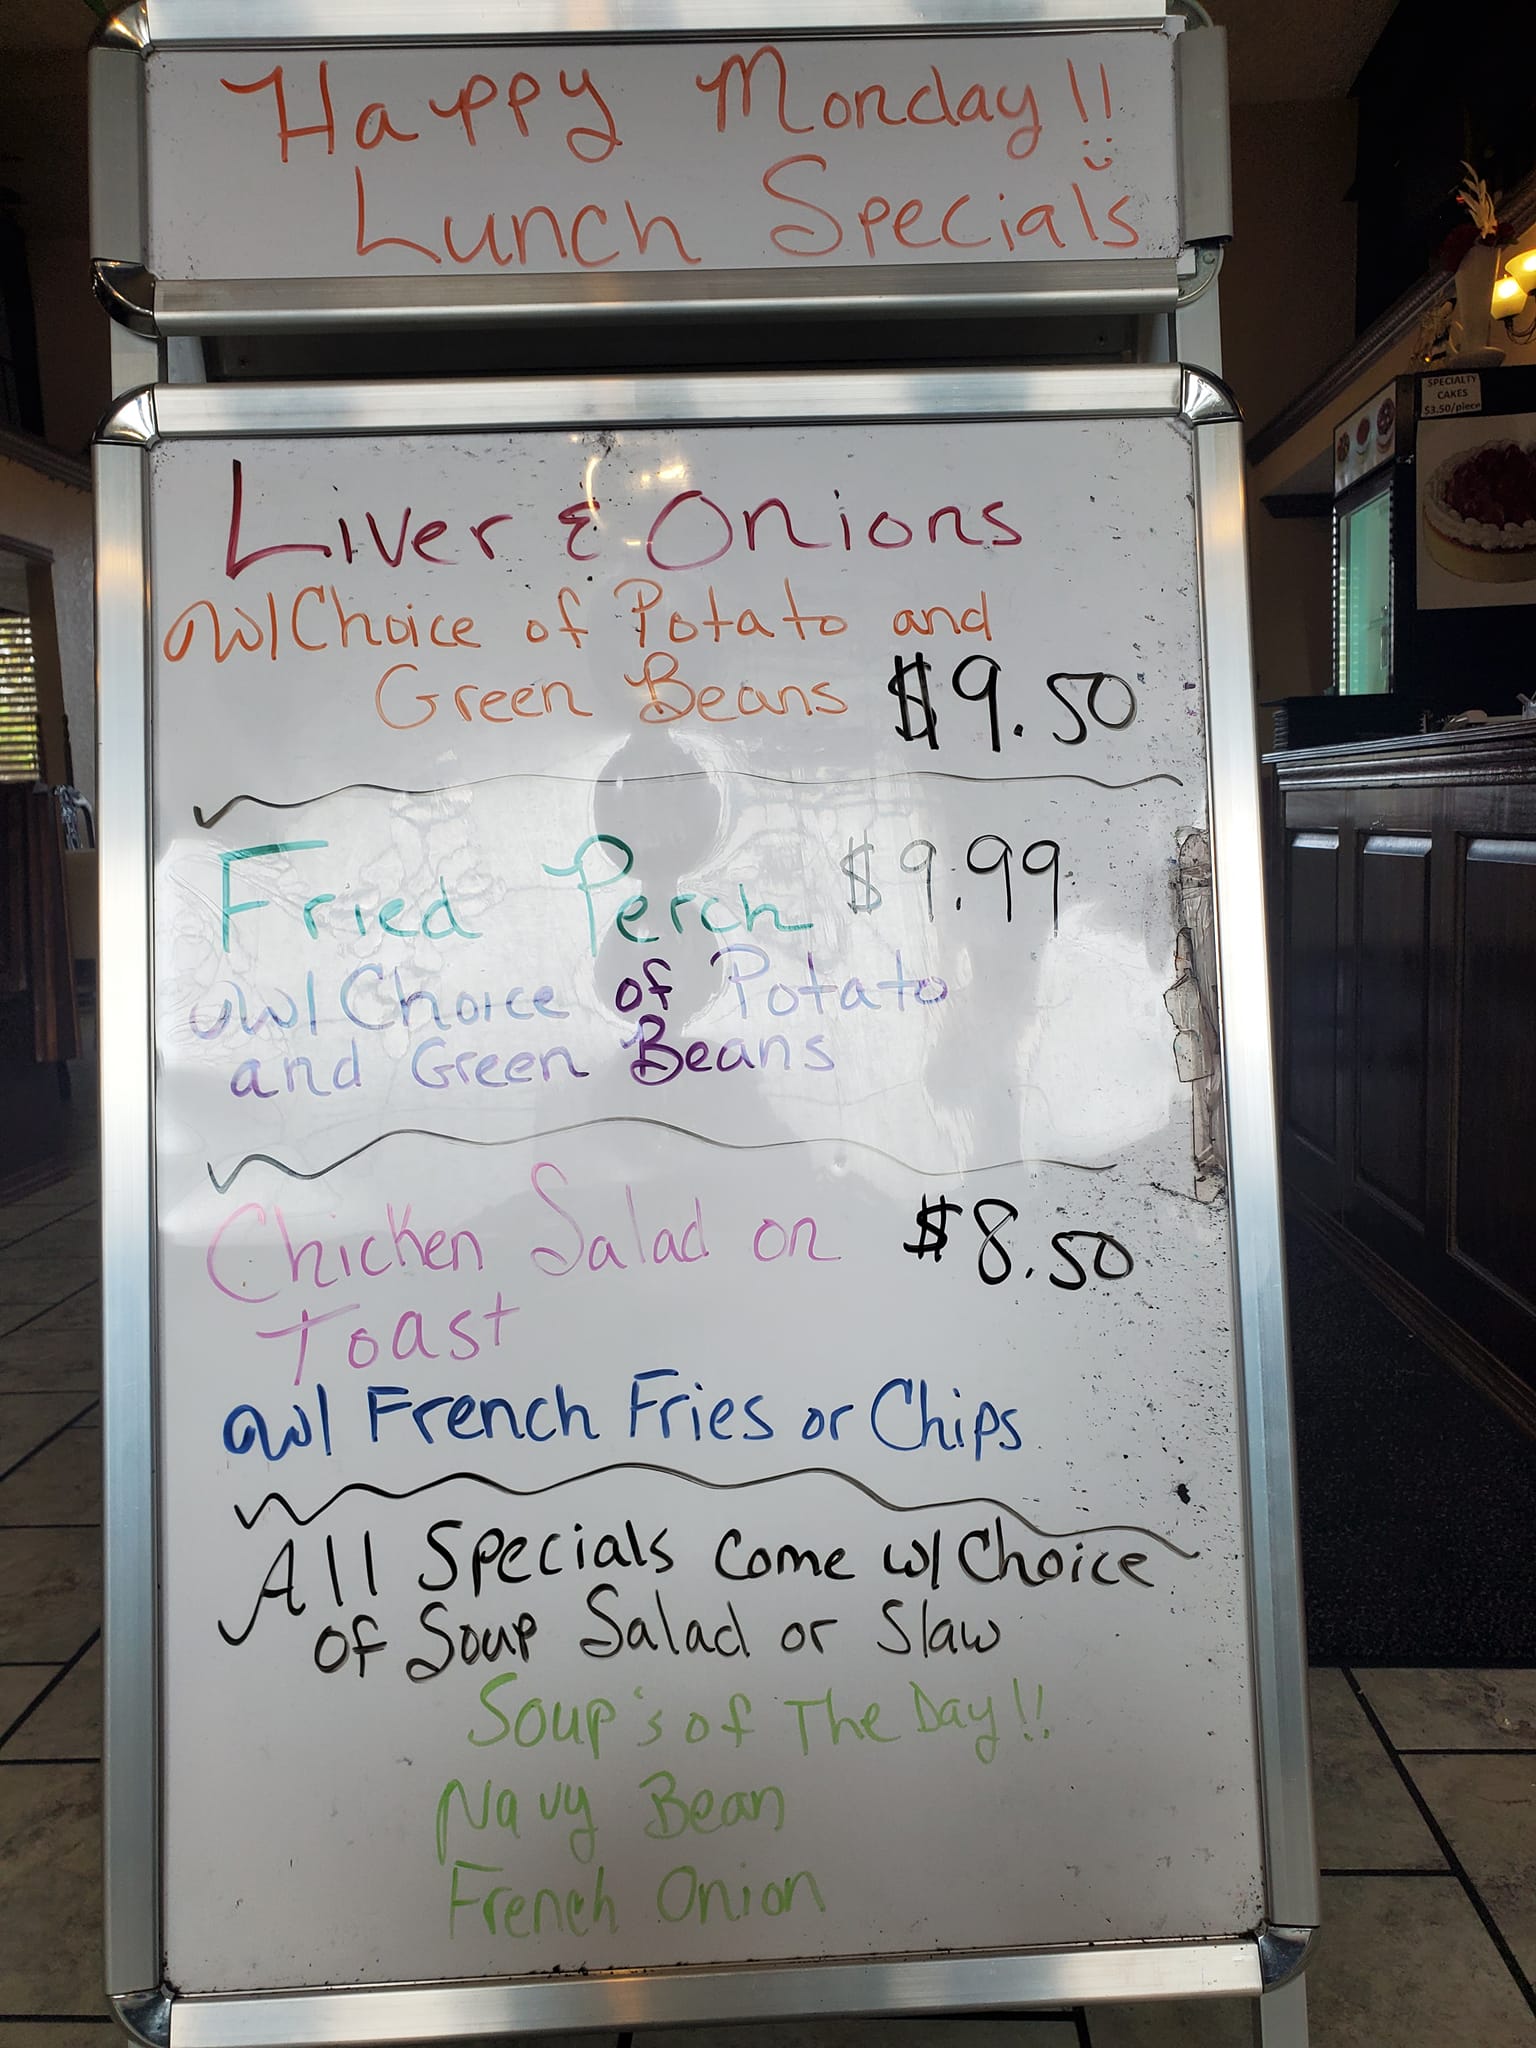 Happy Monday!!
Lunch Specials
Liver & Onions
w/ Choice of Potato and
Green Beans $9.50
Fried Perch $9.99
w/ Choice of Potato
and Green Beans
Chicken Salad on $8.50
Toast
w/ French Fries or Chips
All Specials Come w/ Choice
of Soup Salad or Slaw
Soup's of The Day!!
Navy Bean
French Onion
SPECIALTY
CAKES
$3.50/piece